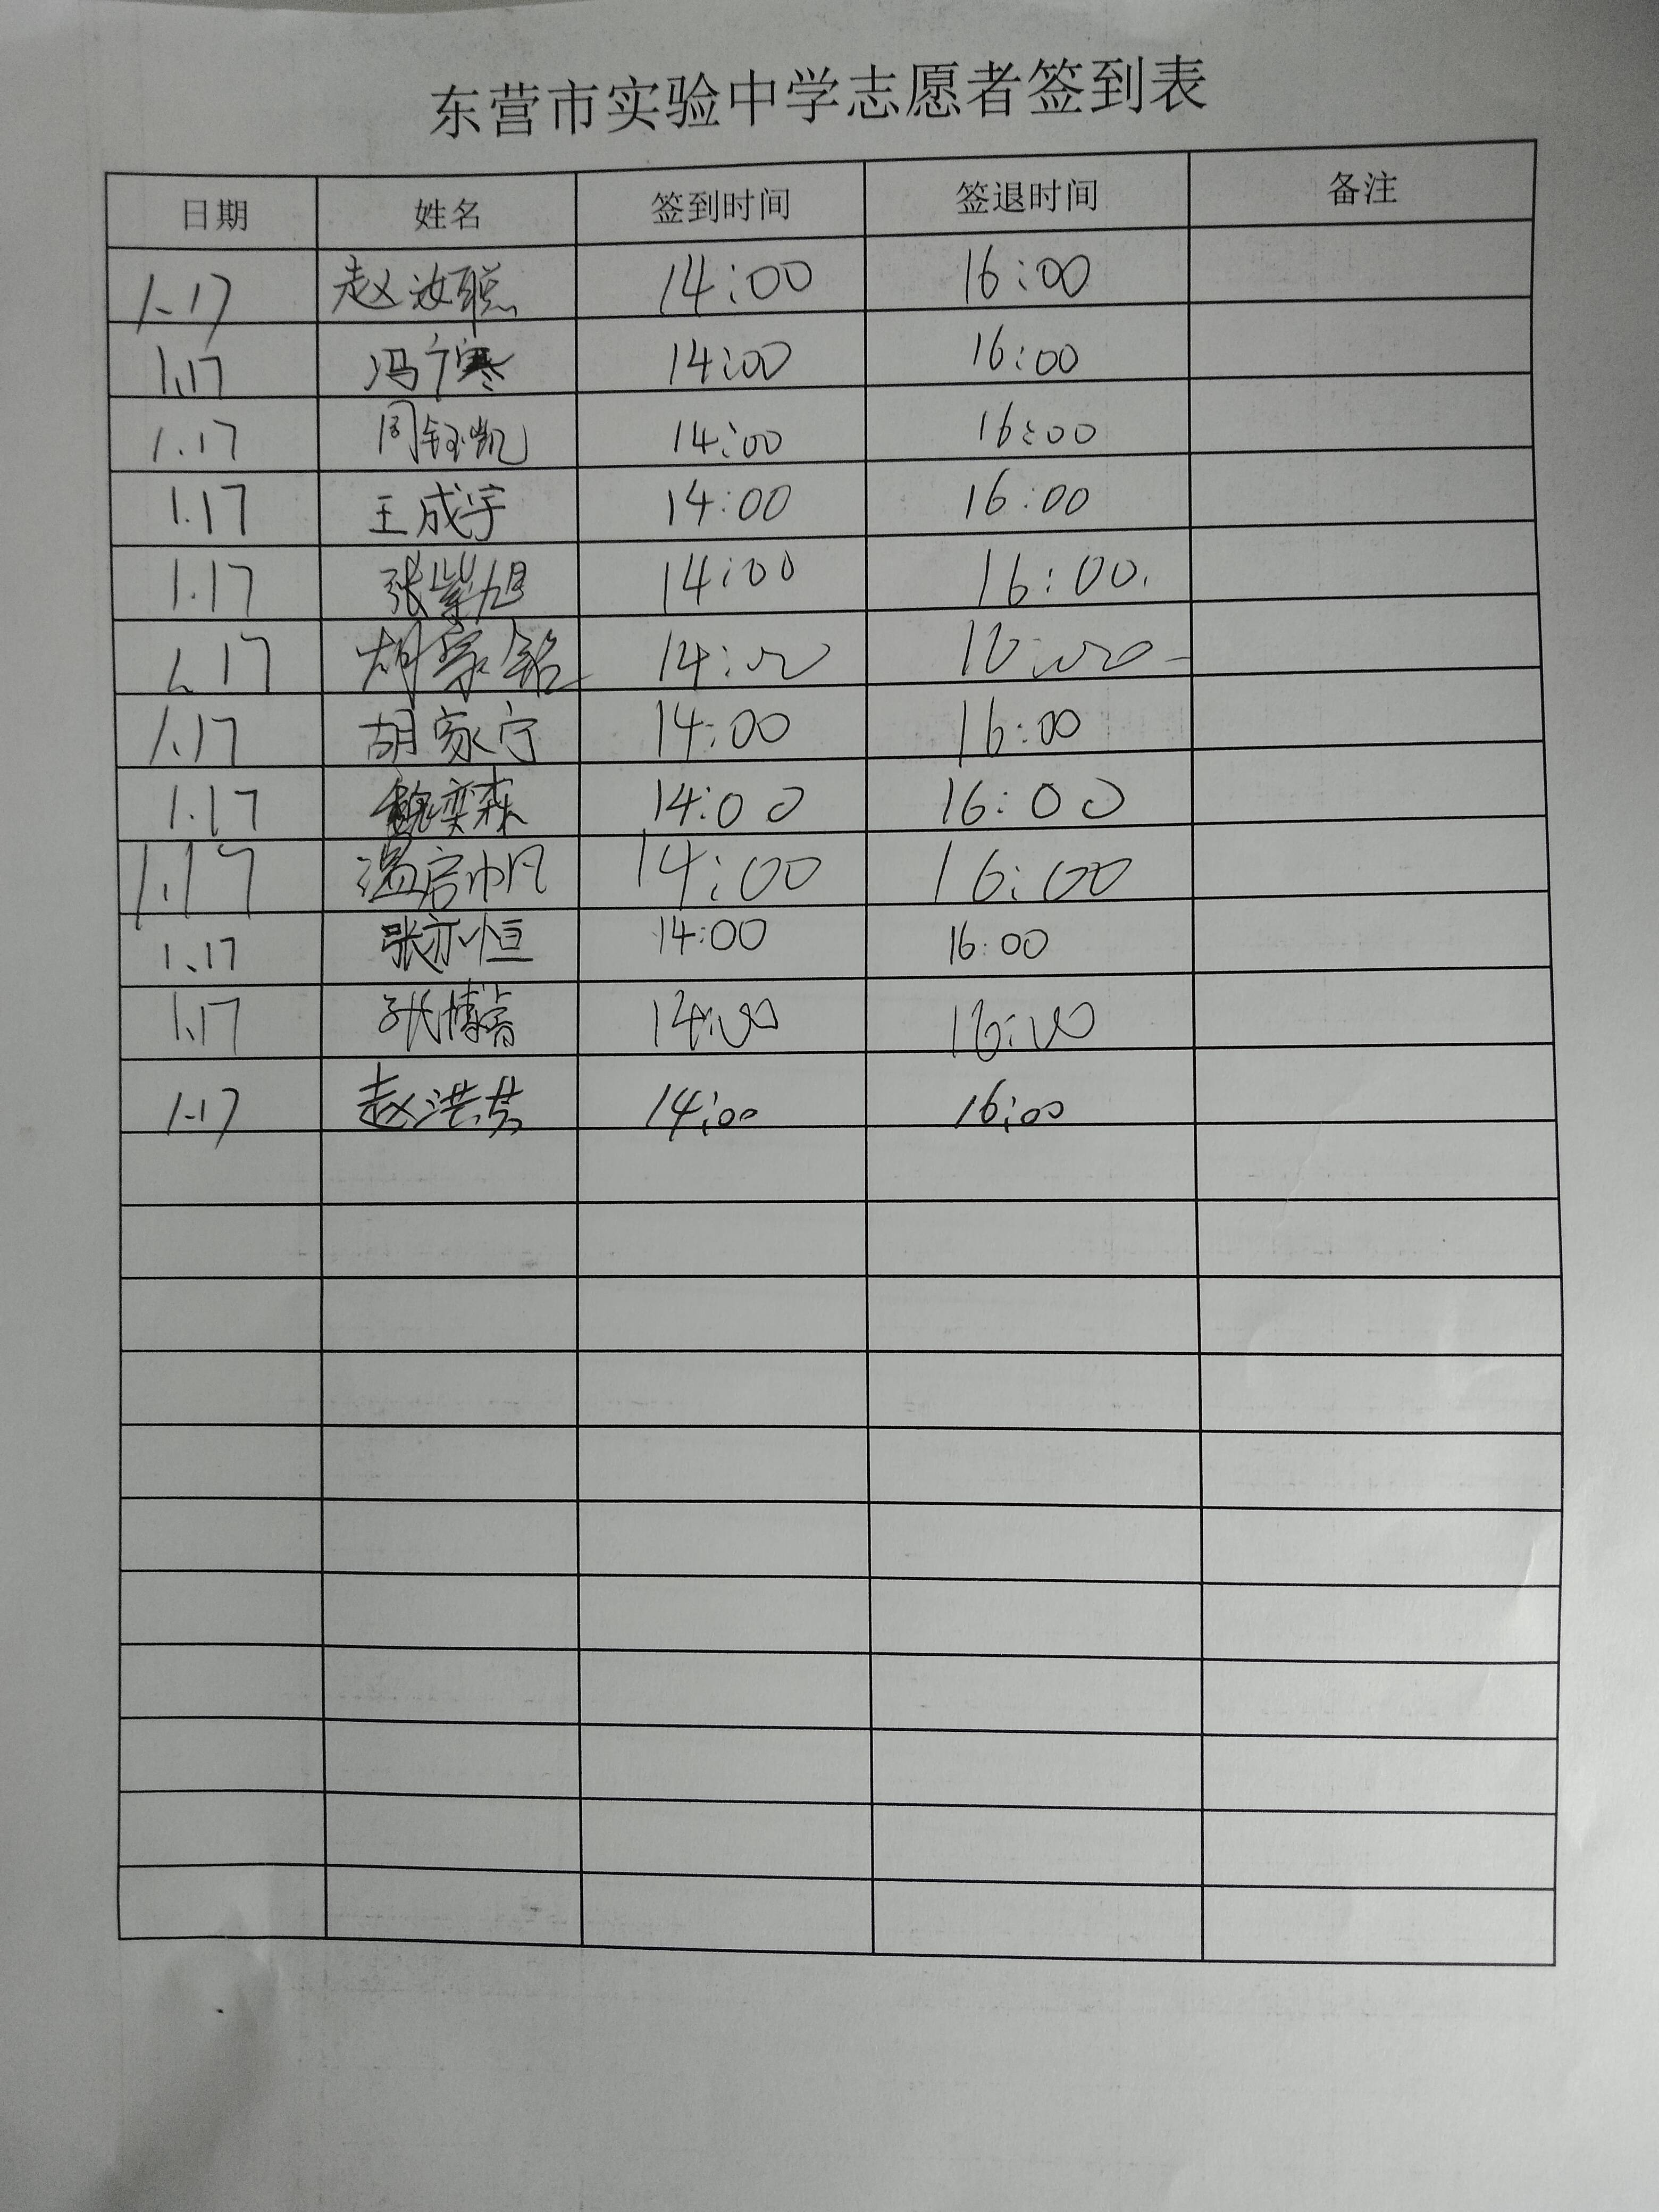 东营市实验中学志愿者签到表
日期 姓名 签到时间 签退时间 备注
1.17 赵汝聪 14:00 16:00
1.17 冯宁寒 14:00 16:00
1.17 周钰凯 14:00 16:00
1.17 王成宇 14:00 16:00
1.17 张紫旭 14:00 16:00.
1.17 胡家铭 14:00 16:00
1.17 胡家宁 14:00 16:00
1.17 魏奕森 14:00 16:00
1.17 温启帆 14:00 16:00
1.17 张亦恒 14:00 16:00
1.17 张博 14:00 16:00
1.17 赵洪 14:00 16:00